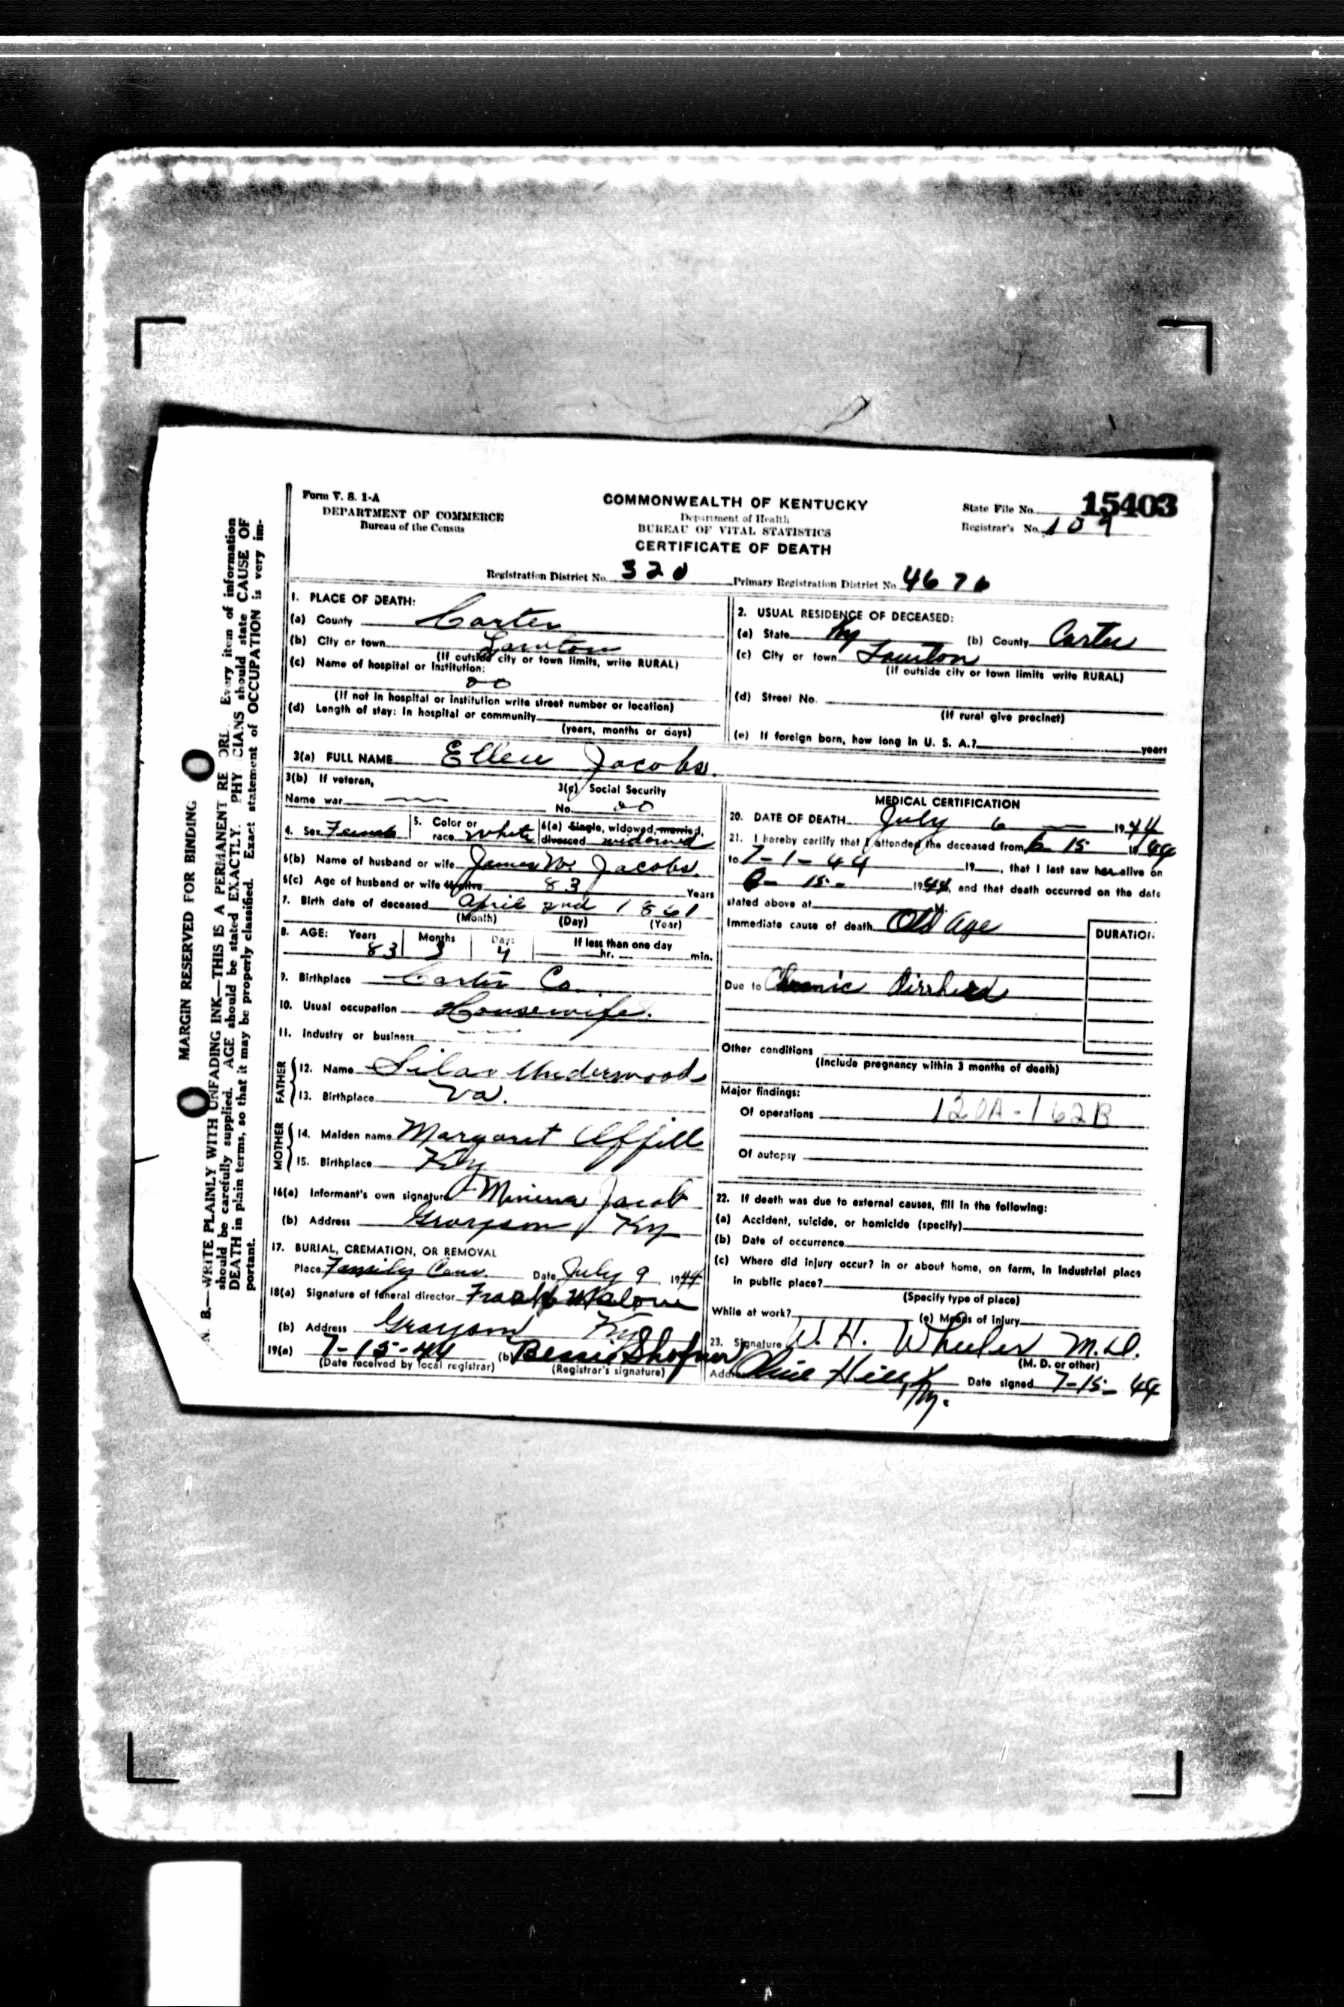 Form V. S. 1-A
DEPARTMENT OF COMMERCE
Bureau of the Census
COMMONWEALTH OF KENTUCKY
Department of Health
BUREAU OF VITAL STATISTICS
CERTIFICATE OF DEATH
State File No. 15403
Registrar's No. 109
Registration District No. 320 Primary Registration District No. 4670
MARGIN RESERVED FOR BINDING
N. B.—WRITE PLAINLY WITH UNFADING INK—THIS IS A PERMANENT RE ORD. Every item of information
should be carefully supplied. AGE should be stated EXACTLY. PHY CIANS should state CAUSE OF
DEATH in plain terms, so that it may be properly classified. Exact statement of OCCUPATION is very im-
portant.
1. PLACE OF DEATH:
(a) County Carter
(b) City or town Lawton
(If outside city or town limits, write RURAL)
(c) Name of hospital or Institution:
00
(If not in hospital or institution write street number or location)
(d) Length of stay: In hospital or community
(years, months or days)
2. USUAL RESIDENCE OF DECEASED:
(a) State Ky (b) County Carter
(c) City or town Lawton
(If outside city or town limits write RURAL)
(d) Street No.
(If rural give precinct)
(e) If foreign born, how long in U. S. A.? years
3(a) FULL NAME Ellen Jacobs.
3(b) If veteran,
Name war
3(c) Social Security
No. 00
4. Sex Female 5. Color or race White 6(a) Single, widowed, married, divorced widowed
6(b) Name of husband or wife James W. Jacobs
6(c) Age of husband or wife if alive 83 Years
7. Birth date of deceased April 2nd 1861
(Month) (Day) (Year)
8. AGE: Years Months Days If less than one day
83 3 4 hr. min.
9. Birthplace Carter Co.
10. Usual occupation Housewife.
11. Industry or business
FATHER
12. Name Silas Underwood
13. Birthplace Va.
MOTHER
14. Maiden name Margaret Offill
15. Birthplace Ky
16(a) Informant's own signature Minerva Jacob
(b) Address Grayson Ky
17. BURIAL, CREMATION, OR REMOVAL
Place Family Cem. Date July 9 1944
18(a) Signature of funeral director Frank Malone
(b) Address Grayson Ky
19(a) 7-15-44 (b) Bessie Shofner
(Date received by local registrar) (Registrar's signature)
MEDICAL CERTIFICATION
20. DATE OF DEATH July 6 1944
21. I hereby certify that I attended the deceased from 6 15 1944
to 7-1-44 19 , that I last saw her alive on
6- 15- 1944, and that death occurred on the date
stated above at M.
Immediate cause of death Old Age
DURATION
Due to Chronic Dirrhea
Other conditions
(Include pregnancy within 3 months of death)
Major findings:
Of operations 120A-162B
Of autopsy
22. If death was due to external causes, fill in the following:
(a) Accident, suicide, or homicide (specify)
(b) Date of occurrence
(c) Where did injury occur? in or about home, on farm, in industrial place
in public place?
(Specify type of place)
While at work? (e) Means of Injury
23. Signature W. H. Wheeler M.D.
(M. D. or other)
Address Olive Hill Ky. Date signed 7-15-44